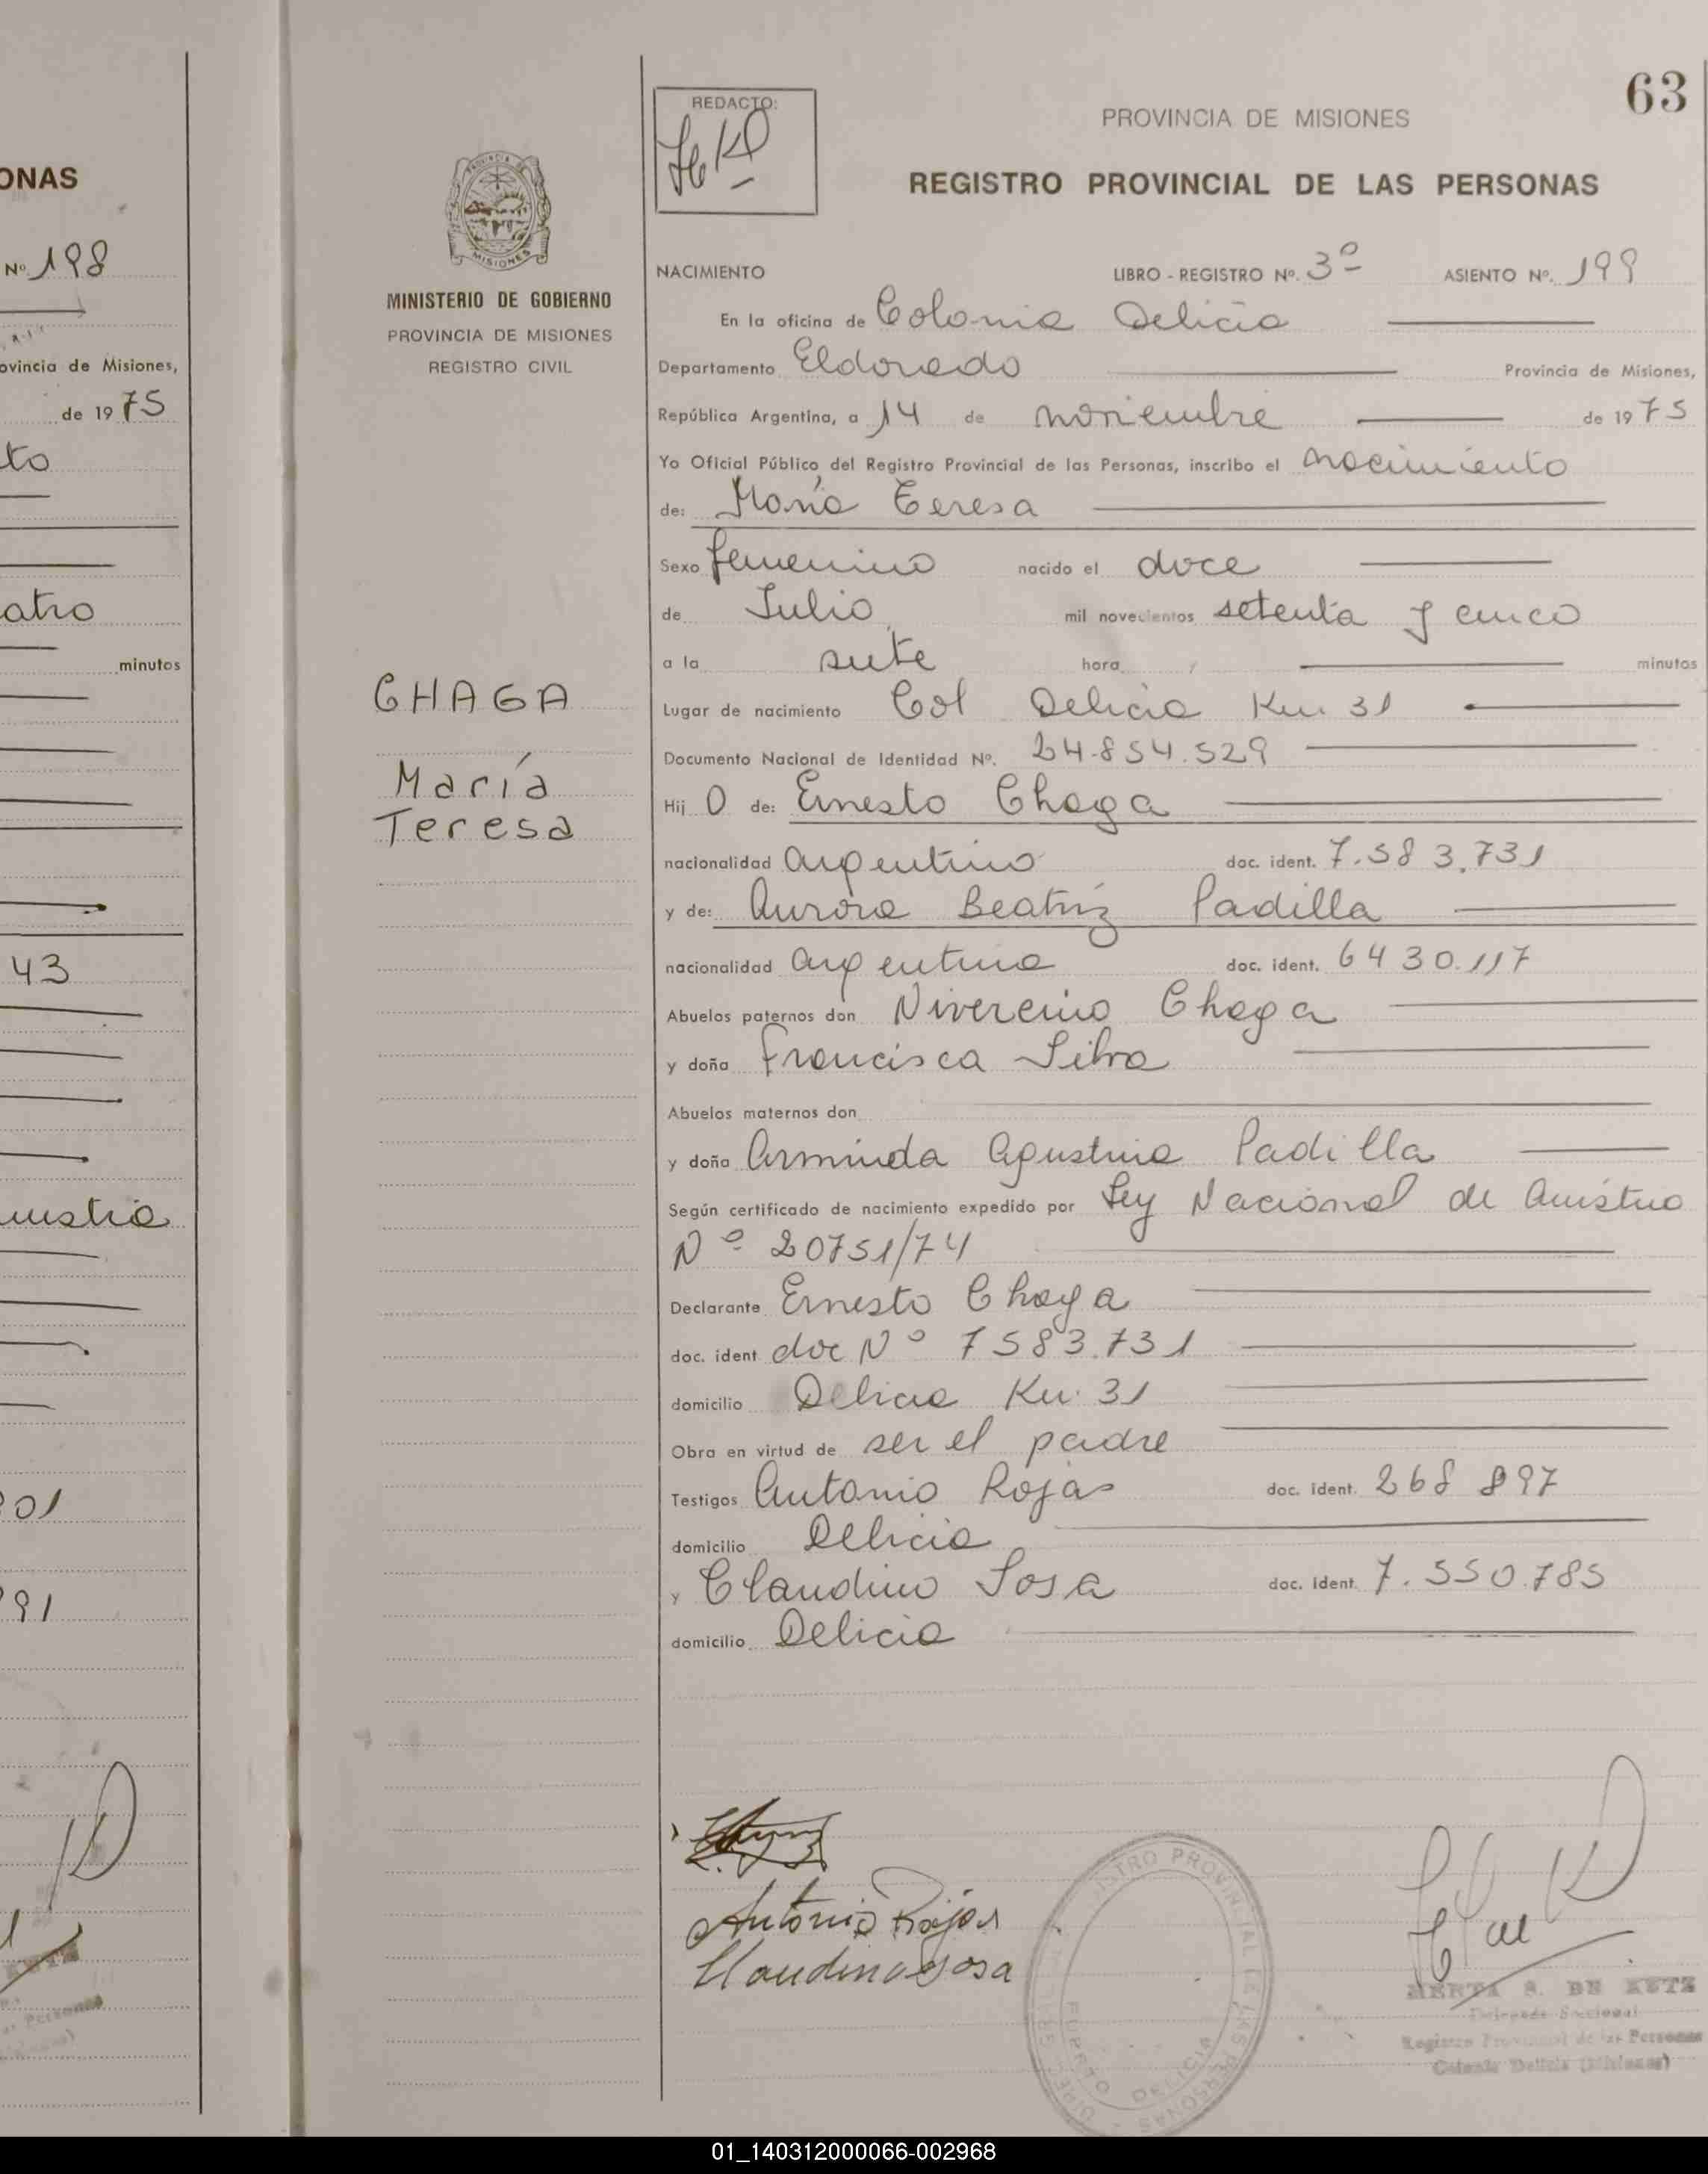 ONAS
Nº 198
ovincia de Misiones,
de 1975
to
atro
minutos
43
01
91
MINISTERIO DE GOBIERNO
PROVINCIA DE MISIONES
REGISTRO CIVIL
CHAGA
María
Teresa
REDACTO:
63
PROVINCIA DE MISIONES
REGISTRO PROVINCIAL DE LAS PERSONAS
NACIMIENTO LIBRO - REGISTRO Nº. 3º ASIENTO Nº. 199
En la oficina de Colonia Delicia
Departamento Eldorado Provincia de Misiones,
República Argentina, a 14 de noviembre de 1975
Yo Oficial Público del Registro Provincial de las Personas, inscribo el nacimiento
de: María Teresa
Sexo femenino nacido el doce
de Julio mil novecientos setenta y cinco
a la siete hora minutos
Lugar de nacimiento Col Delicia Km. 31
Documento Nacional de Identidad Nº. 24.854.529
Hij O de: Ernesto Chaga
nacionalidad argentino doc. ident. 7.583.731
y de: Aurora Beatríz Padilla
nacionalidad argentina doc. ident. 6430.117
Abuelos paternos don Nivercino Chaga
y doña Francisca Silva
Abuelos maternos don
y doña Arminda Agustina Padilla
Según certificado de nacimiento expedido por Ley Nacional de
Nº 20751/74
Declarante Ernesto Chaga
doc. ident doc Nº 7583.731
domicilio Delicia Km. 31
Obra en virtud de ser el padre
Testigos Antonio Rojas doc. ident. 268 897
domicilio Delicia
y Claudino Sosa doc. ident. 7.550.785
domicilio Delicia
Antonio Rojas
Claudino Sosa
PUERTO DELICIA
DE KETZ
Registro Provincial de las Personas
Colonia Delicia (Misiones)
01_140312000066-002968